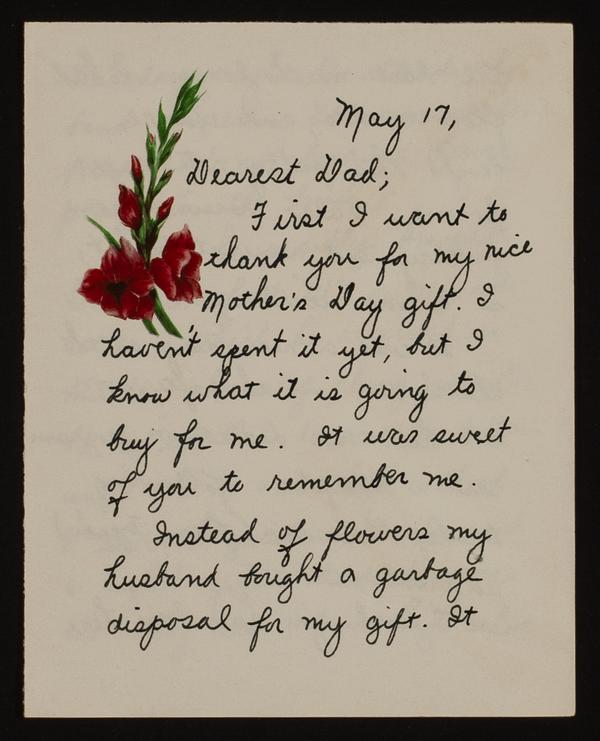 May 17,
Dearest Dad;
First I want to
thank you for my nice
Mother's Day gift. I
haven't spent it yet, but I
know what it is going to
buy for me. It was sweet
of you to remember me.
Instead of flowers my
husband bought a garbage
disposal for my gift. It